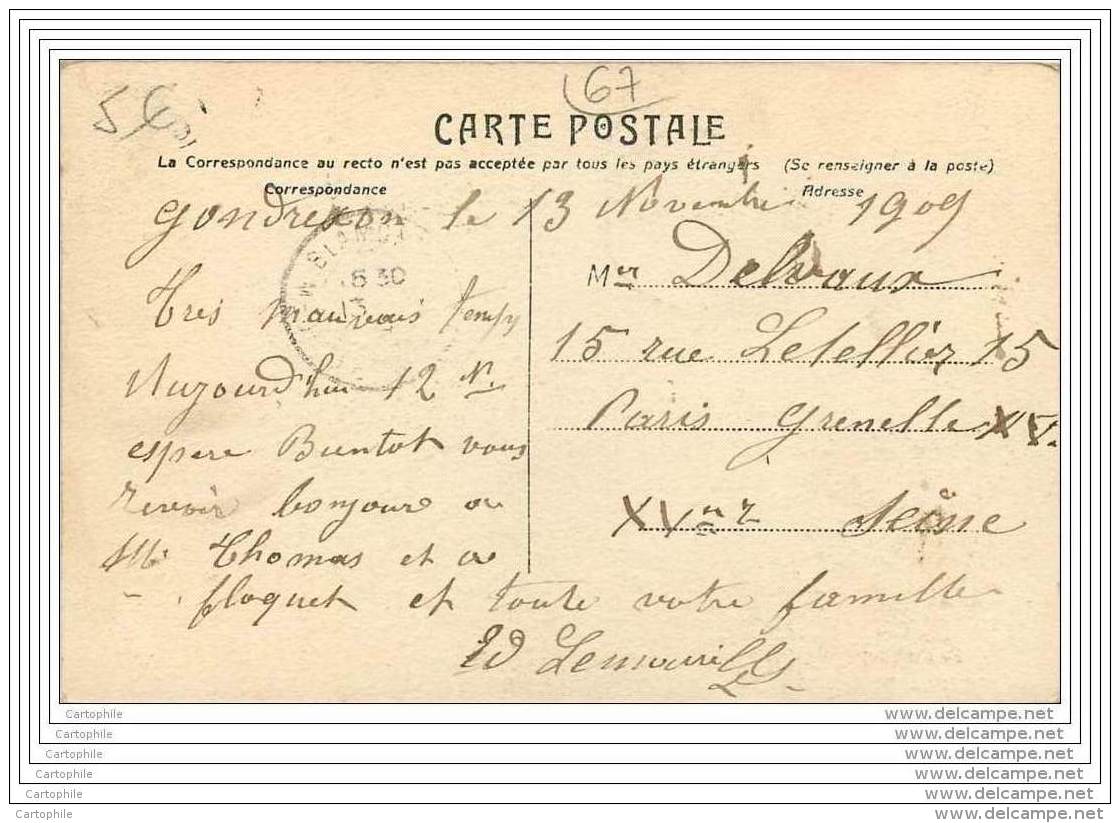 5€
67
CARTE POSTALE
La Correspondance au recto n'est pas acceptée par tous les pays étrangers (Se renseigner à la poste)
Correspondance
Adresse
Gondrexon le 13 Novembre 1909
BLAMONT
Très mauvais temps
Aujourd'hui 12 N.
espere Bientot vous
revoir bonjour a
Mr Thomas et a
floquet et toute votre famille
Ed
Mr Delvaux
15 rue Letellier 15
Paris Grenelle XV.
XVme Seine
Cartophile www.delcampe.net
Cartophile www.delcampe.net
Cartophile www.delcampe.net
Cartophile www.delcampe.net
Cartophile www.delcampe.net
Cartophile www.delcampe.net